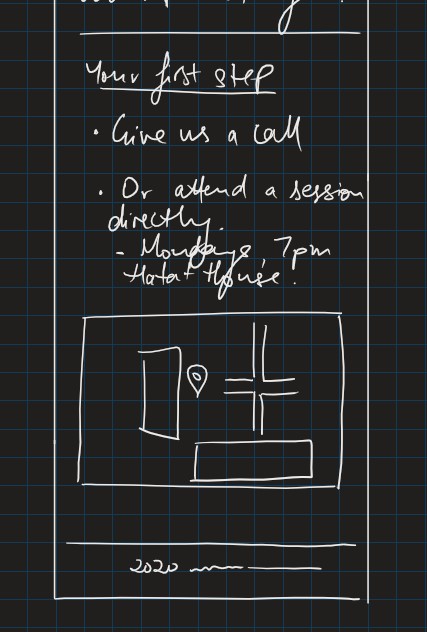 Your first step
• Give us a call
• Or attend a session
directly.
- Mondays, 7pm
House.
2020